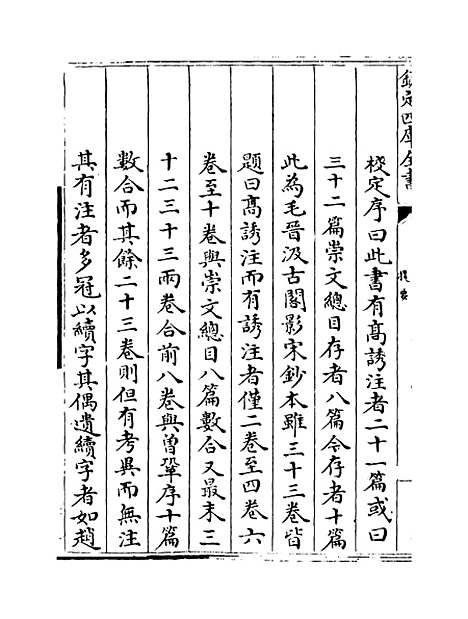 欽定四庫全書
提要
校定序曰此書有髙誘注者二十一篇或曰
三十二篇崇文總目存者八篇今存者十篇
此為毛晉汲古閣影宋鈔本雖三十三卷皆
題曰髙誘注而有誘注者僅二卷至四卷六
卷至十卷與崇文總目八篇數合又最末三
十二三十三兩卷合前八卷與曾鞏序十篇
數合而其餘二十三卷則但有考異而無注
其有注者多冠以續字其偶遺續字者如趙